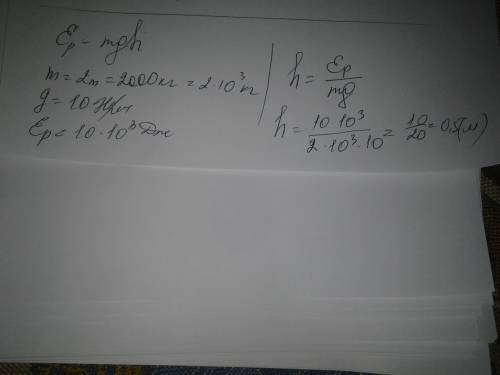 Ep - mgh
m = 2т = 2000 кг = 2·10³ кг
g = 10 Н/кг
Ep = 10·10³ Дж
h = Ep/mg
h = 10·10³/2·10³·10 = 10/20 = 0,5(м)